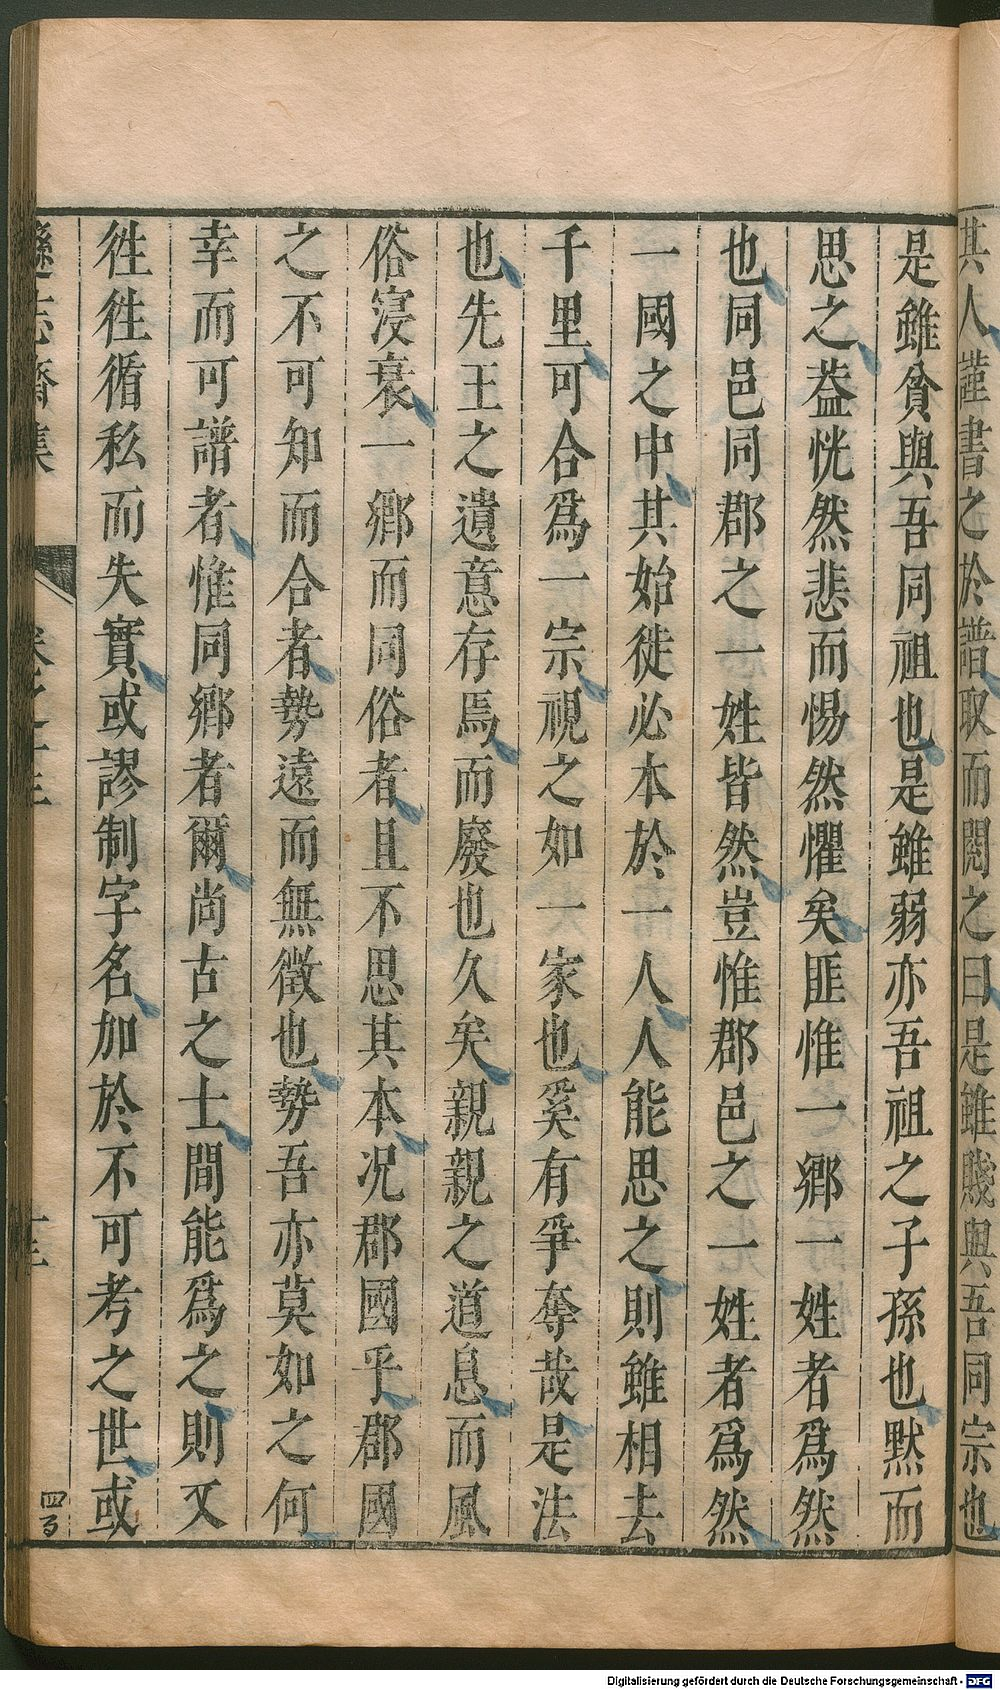 其人謹書之於譜取而閱之曰是雖賤與吾同宗也
是雖貧與吾同祖也是雖弱亦吾祖之子孫也默而
思之葢恍然悲而惕然懼矣匪惟一鄉一姓者爲然
也同邑同郡之一姓皆然豈惟郡邑之一姓者爲然
一國之中其始徙必本於一人人能思之則雖相去
千里可合爲一宗視之如一家也奚有爭奪哉是法
也先王之遺意存焉而廢也久矣親親之道息而風
俗寖衰一鄉而同俗者且不思其本况郡國乎郡國
之不可知而合者勢遠而無徵也勢吾亦莫如之何
幸而可譜者惟同鄉者爾尚古之士間能爲之則又
徃徃循私而失實或謬制字名加於不可考之世或
遜志齋集 卷之十三 十三
四百
Digitalisierung gefördert durch die Deutsche Forschungsgemeinschaft - DFG